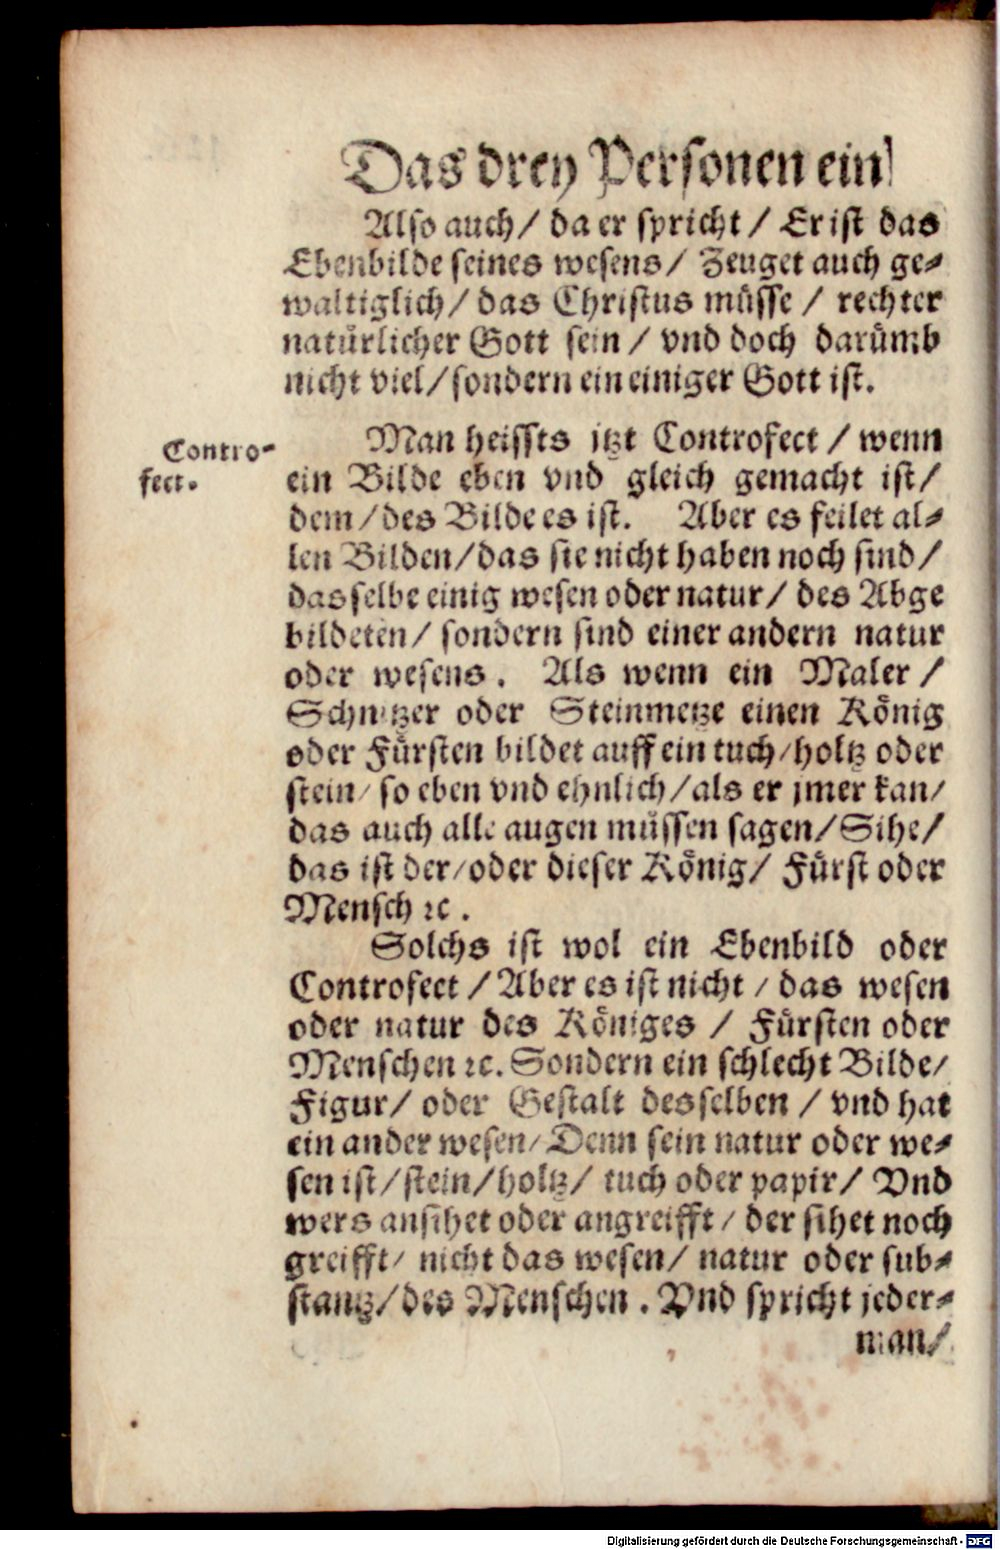 Das drey Personen ein
Also auch/ da er spricht/ Er ist das
Ebenbilde seines wesens/ Zeuget auch ge⸗
waltiglich/ das Christus müsse/ rechter
natürlicher Gott sein/ vnd doch darümb
nicht viel/ sondern ein einiger Gott ist.
Contro⸗
fect.
Man heissts jtzt Controfect/ wenn
ein Bilde eben vnd gleich gemacht ist/
dem/ des Bilde es ist. Aber es feilet al⸗
len Bilden/ das sie nicht haben noch sind/
dasselbe einig wesen oder natur/ des Abge
bildeten/ sondern sind einer andern natur
oder wesens. Als wenn ein Maler/
Schnitzer oder Steinmetze einen König
oder Fürsten bildet auff ein tuch/ holtz oder
stein/ so eben vnd ehnlich/ als er jmer kan/
das auch alle augen müssen sagen/ Sihe/
das ist der/ oder dieser König/ Fürst oder
Mensch ꝛc.
Solchs ist wol ein Ebenbild oder
Controfect/ Aber es ist nicht/ das wesen
oder natur des Königes/ Fürsten oder
Menschen ꝛc. Sondern ein schlecht Bilde/
Figur/ oder Gestalt desselben/ vnd hat
ein ander wesen/ Denn sein natur oder we⸗
sen ist/ stein/ holtz/ tuch oder papir/ Vnd
wers ansihet oder angreifft/ der sihet noch
greifft/ nicht das wesen/ natur oder sub⸗
stantz/ des Menschen. Vnd spricht jeder⸗
man/
Digitalisierung gefördert durch die Deutsche Forschungsgemeinschaft - DFG